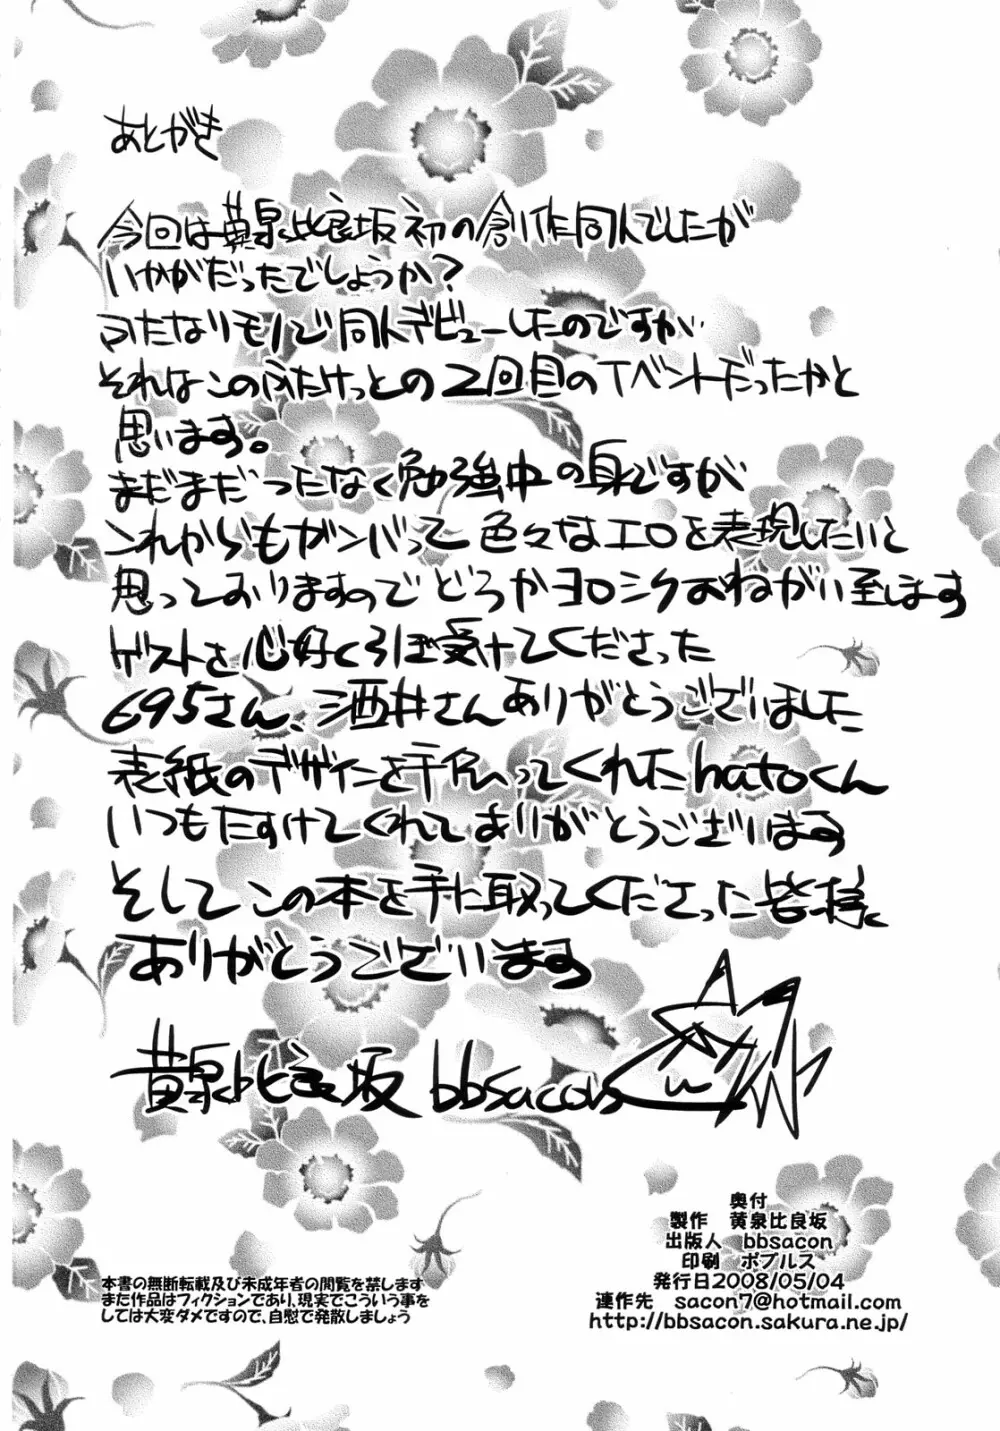 あとがき
今回は黄泉比良坂初の創作同人でしたが
いかがだったでしょうか?
ふたなりモノで同人デビューしたのですが
それはこのふたけっとの2回目のイベントだったかと
思います。
まだまだつたなく勉強中の身ですが
これからもガンバって色々なエロを表現したいと
思っておりますのでどうかヨロシクおねがい致します
ゲストを心好くろぽ受けてくださった
695さん、酒井さんありがとうございました
表紙のデザインを手伝ってくれたhatoくん
いつもたすけてくれてありがとうございます
そしてこの本を手に取ってくださった皆様に
ありがとうございます
黄泉比良坂 bbsacon
奥付
製作 黄泉比良坂
出版人 bbsacon
印刷 ポプルス
発行日2008/05/04
連作先 sacon7@hotmail.com
http://bbsacon.sakura.ne.jp/
本書の無断転載及び未成年者の閲覧を禁します
また作品はフィクションであり、現実でこういう事を
しては大変ダメですので、自慰で発散しましょう